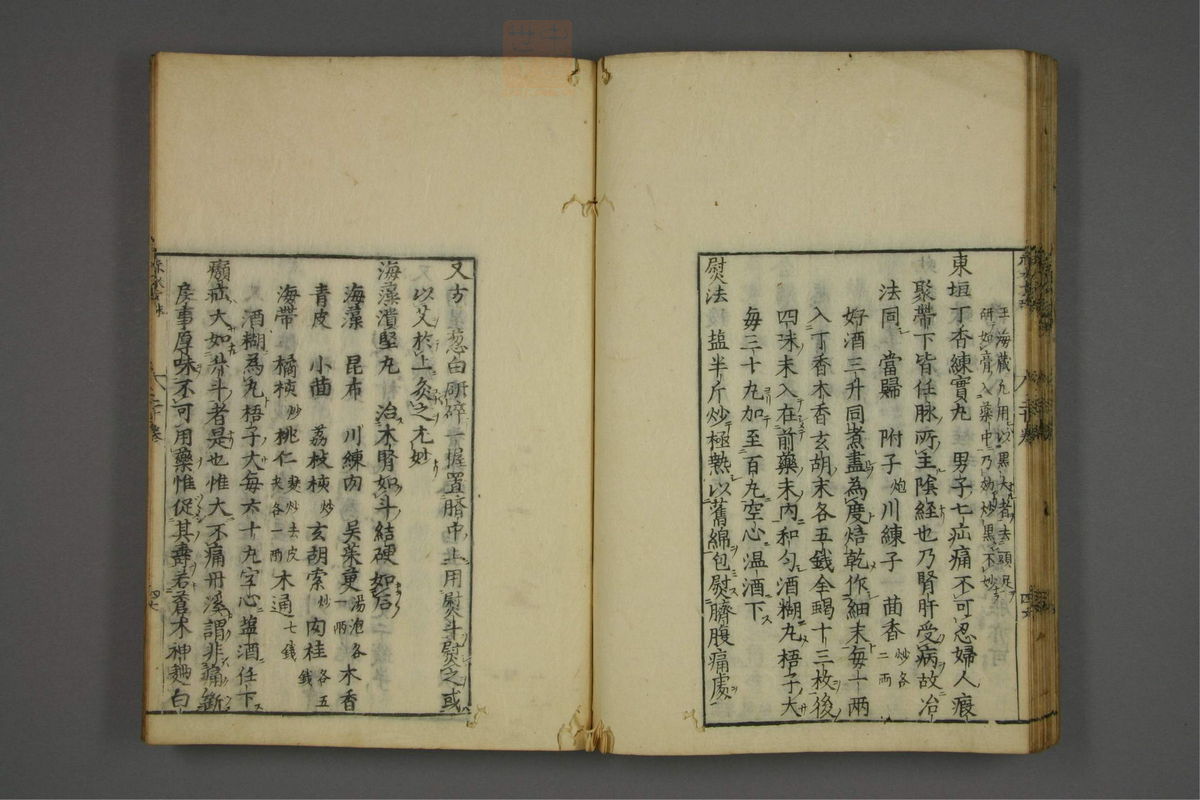 王海藏九用以黒犬者去頭足
研如膏入藥中乃妙炒黒不妙
東垣丁香練實丸 男子七疝痛不可忍婦人瘕
聚帶下皆任脉所主陰経也乃腎肝受病故治
法同 當歸 附子炮川練子 茴香炒各二両
好酒三升同煮盡為度焙乾作細末每十両
入丁香木香玄胡末各五錢全蝎十三枚後
四味末入在前藥末內和勻酒糊丸梧子大
每三十丸加至百丸空心温酒下
熨法 塩半斤炒極熱以舊綿包熨臍腹痛處
又方 葱白研碎一握置臍中上用熨斗熨之或
以艾於上灸之尤妙
海藻潰堅丸 治木腎如斗結硬如石
海藻 昆布 川練肉 吳茱萸湯泡各一両木香
青皮 小茴 荔枝核炒玄胡索炒肉桂各五錢
海帶 橘核炒桃仁麩炒去皮尖各一両木通七錢
酒糊為丸梧子大每六十丸空心塩酒任下
㿗疝大如升斗者是也惟大不痛丹溪謂非痛斷
房事厚味不可用藥惟促其壽若蒼朮神麹白